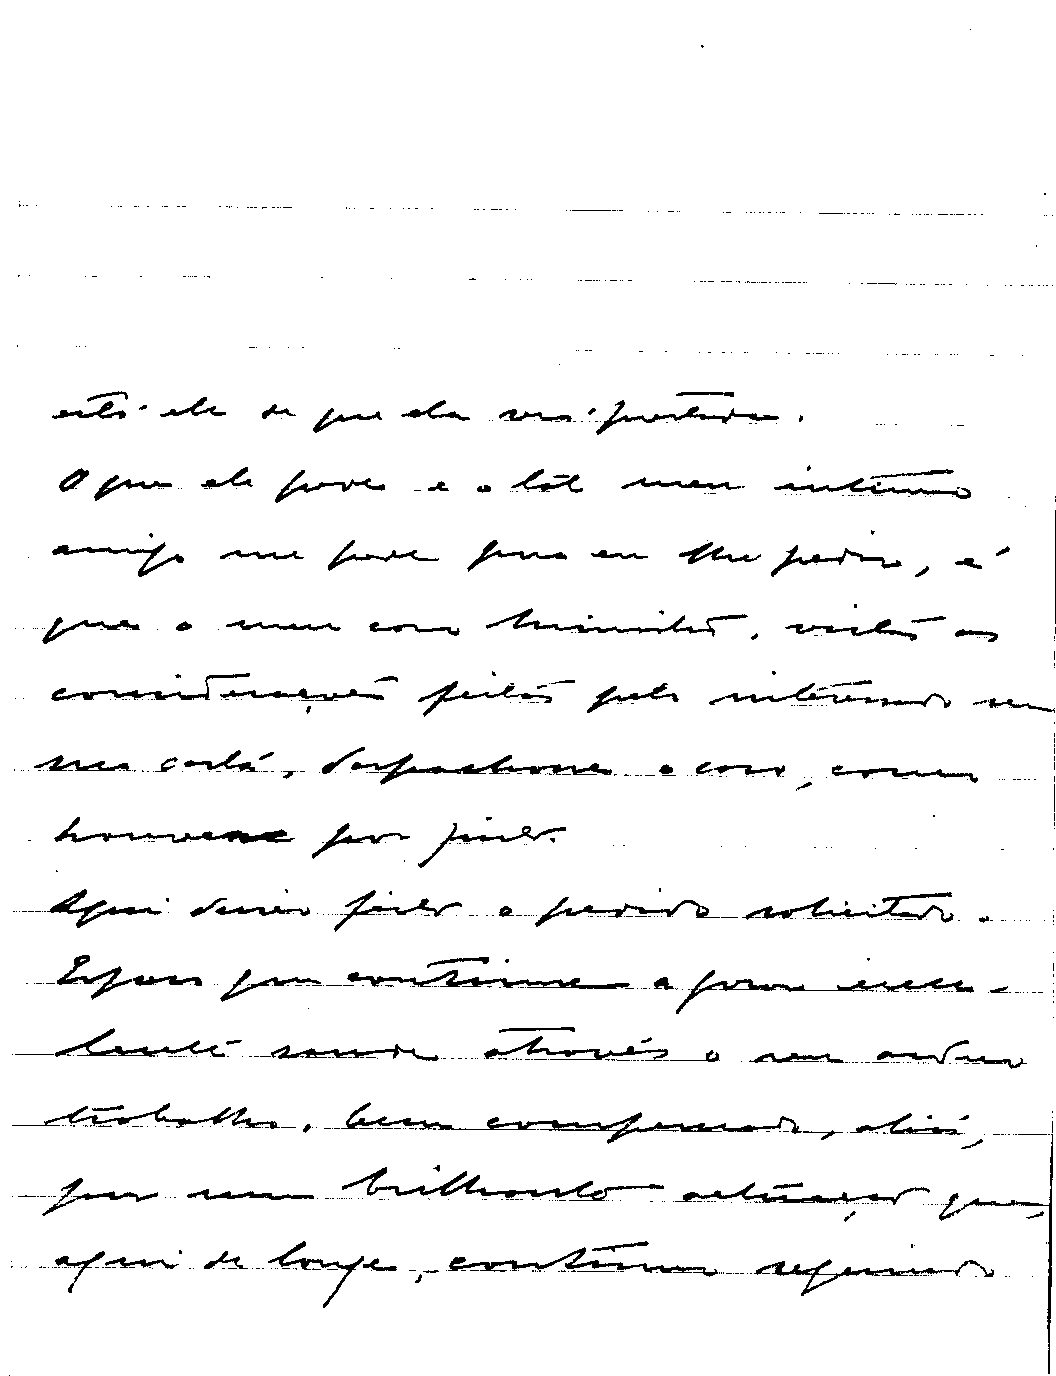 está ele de que ela será portadora.
O que ele pede e o tal meu íntimo
amigo me pede para eu lhe pedir, é
que o meu caro Ministro, vistas as
considerações feitas pelo interessado em
sua carta, despachone o caso, como
houvesse por justo.
Aqui deixo feito o pedido solicitado.
Espero que continue a gozar excel-
lente saude através o seu arduo
trabalho, bem compensado, aliás,
por uma brilhante actuação que,
aqui de longe, continuo seguindo